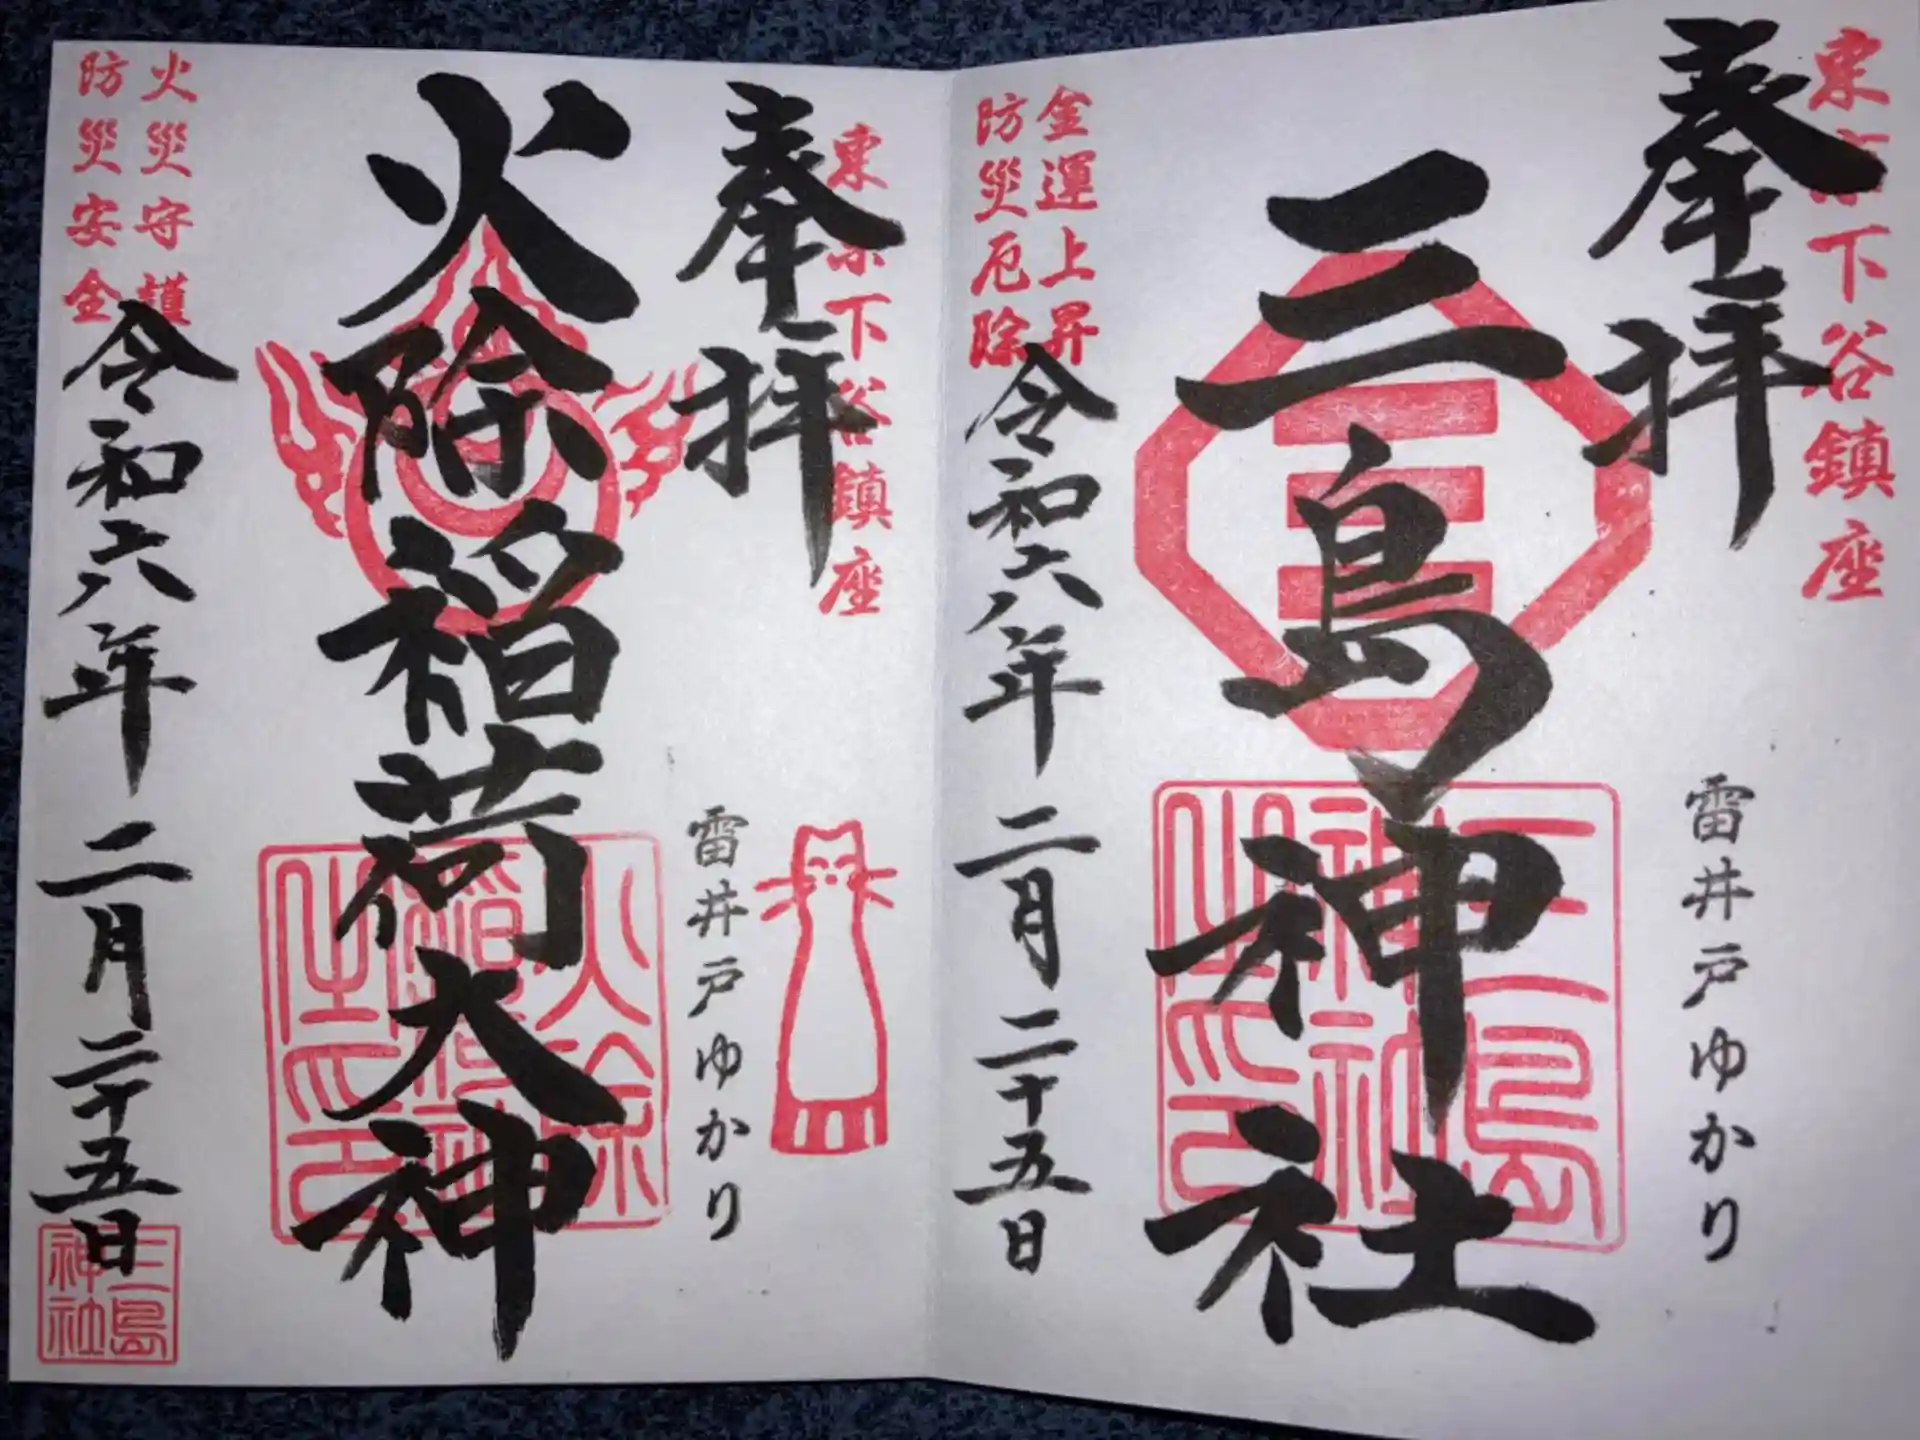 東京下谷鎮座
奉拝
雷井戸ゆかり
三島神社
三島神社之印
金運上昇
防災厄除
令和六年二月二十五日
東京下谷鎮座
奉拝
雷井戸ゆかり
火除稲荷大神
火除稲荷神社之印
火災守護
防災安全
令和六年二月二十五日
三島神社